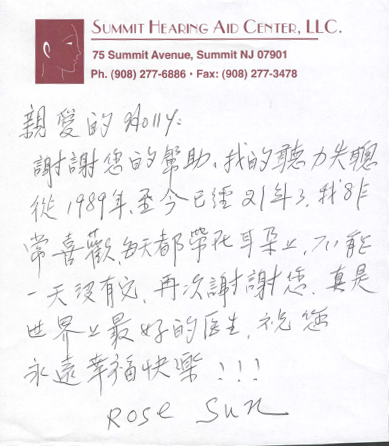 SUMMIT HEARING AID CENTER, LLC.
75 Summit Avenue, Summit NJ 07901
Ph. (908) 277-6886 • Fax: (908) 277-3478
親愛的Holly:
謝謝您的幫助,我的聽力失聰
從1989年,至今已經21年了,我非
常喜歡,每天都帶在耳朵上,不能
一天沒有它,再次謝謝您,真是
世界上最好的医生,祝您
永遠幸福快樂!!!
Rose Sun